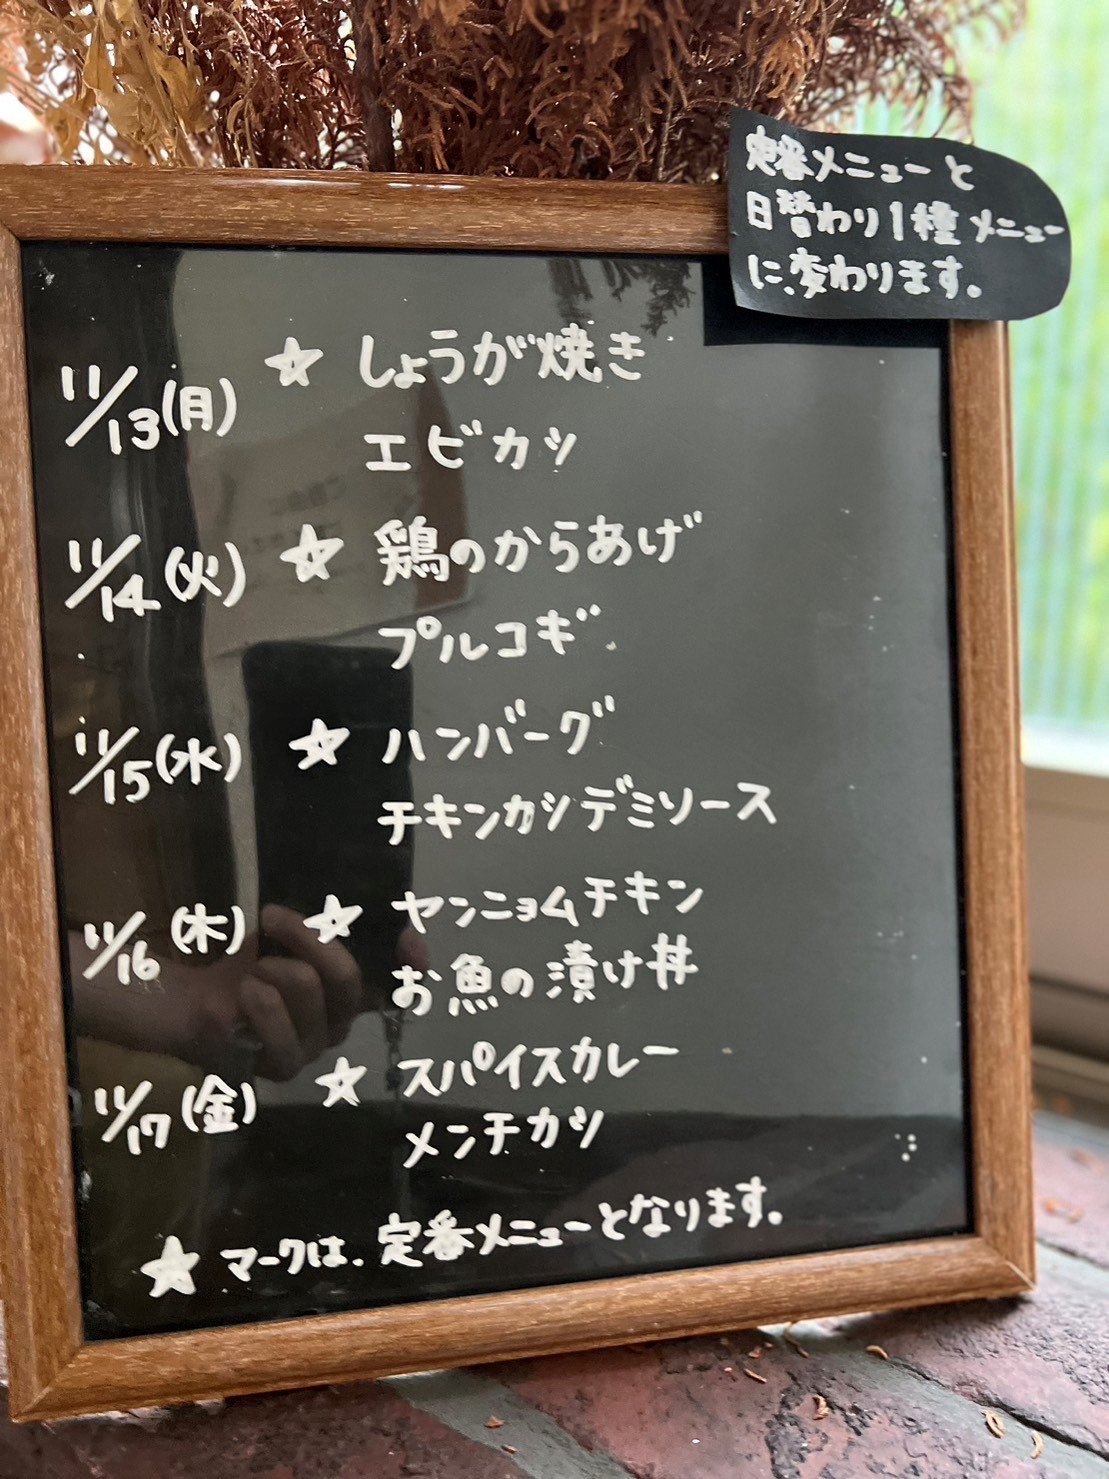 定番メニューと
日替わり1種メニュー
に、変わります。
11/13(月) ★ しょうが焼き
エビカツ
11/14(火) ★ 鶏のからあげ
プルコギ
11/15(水) ★ ハンバーグ
チキンカツデミソース
11/16(木) ★ ヤンニョムチキン
お魚の漬け丼
11/17(金) ★ スパイスカレー
メンチカツ
★ マークは、定番メニューとなります。